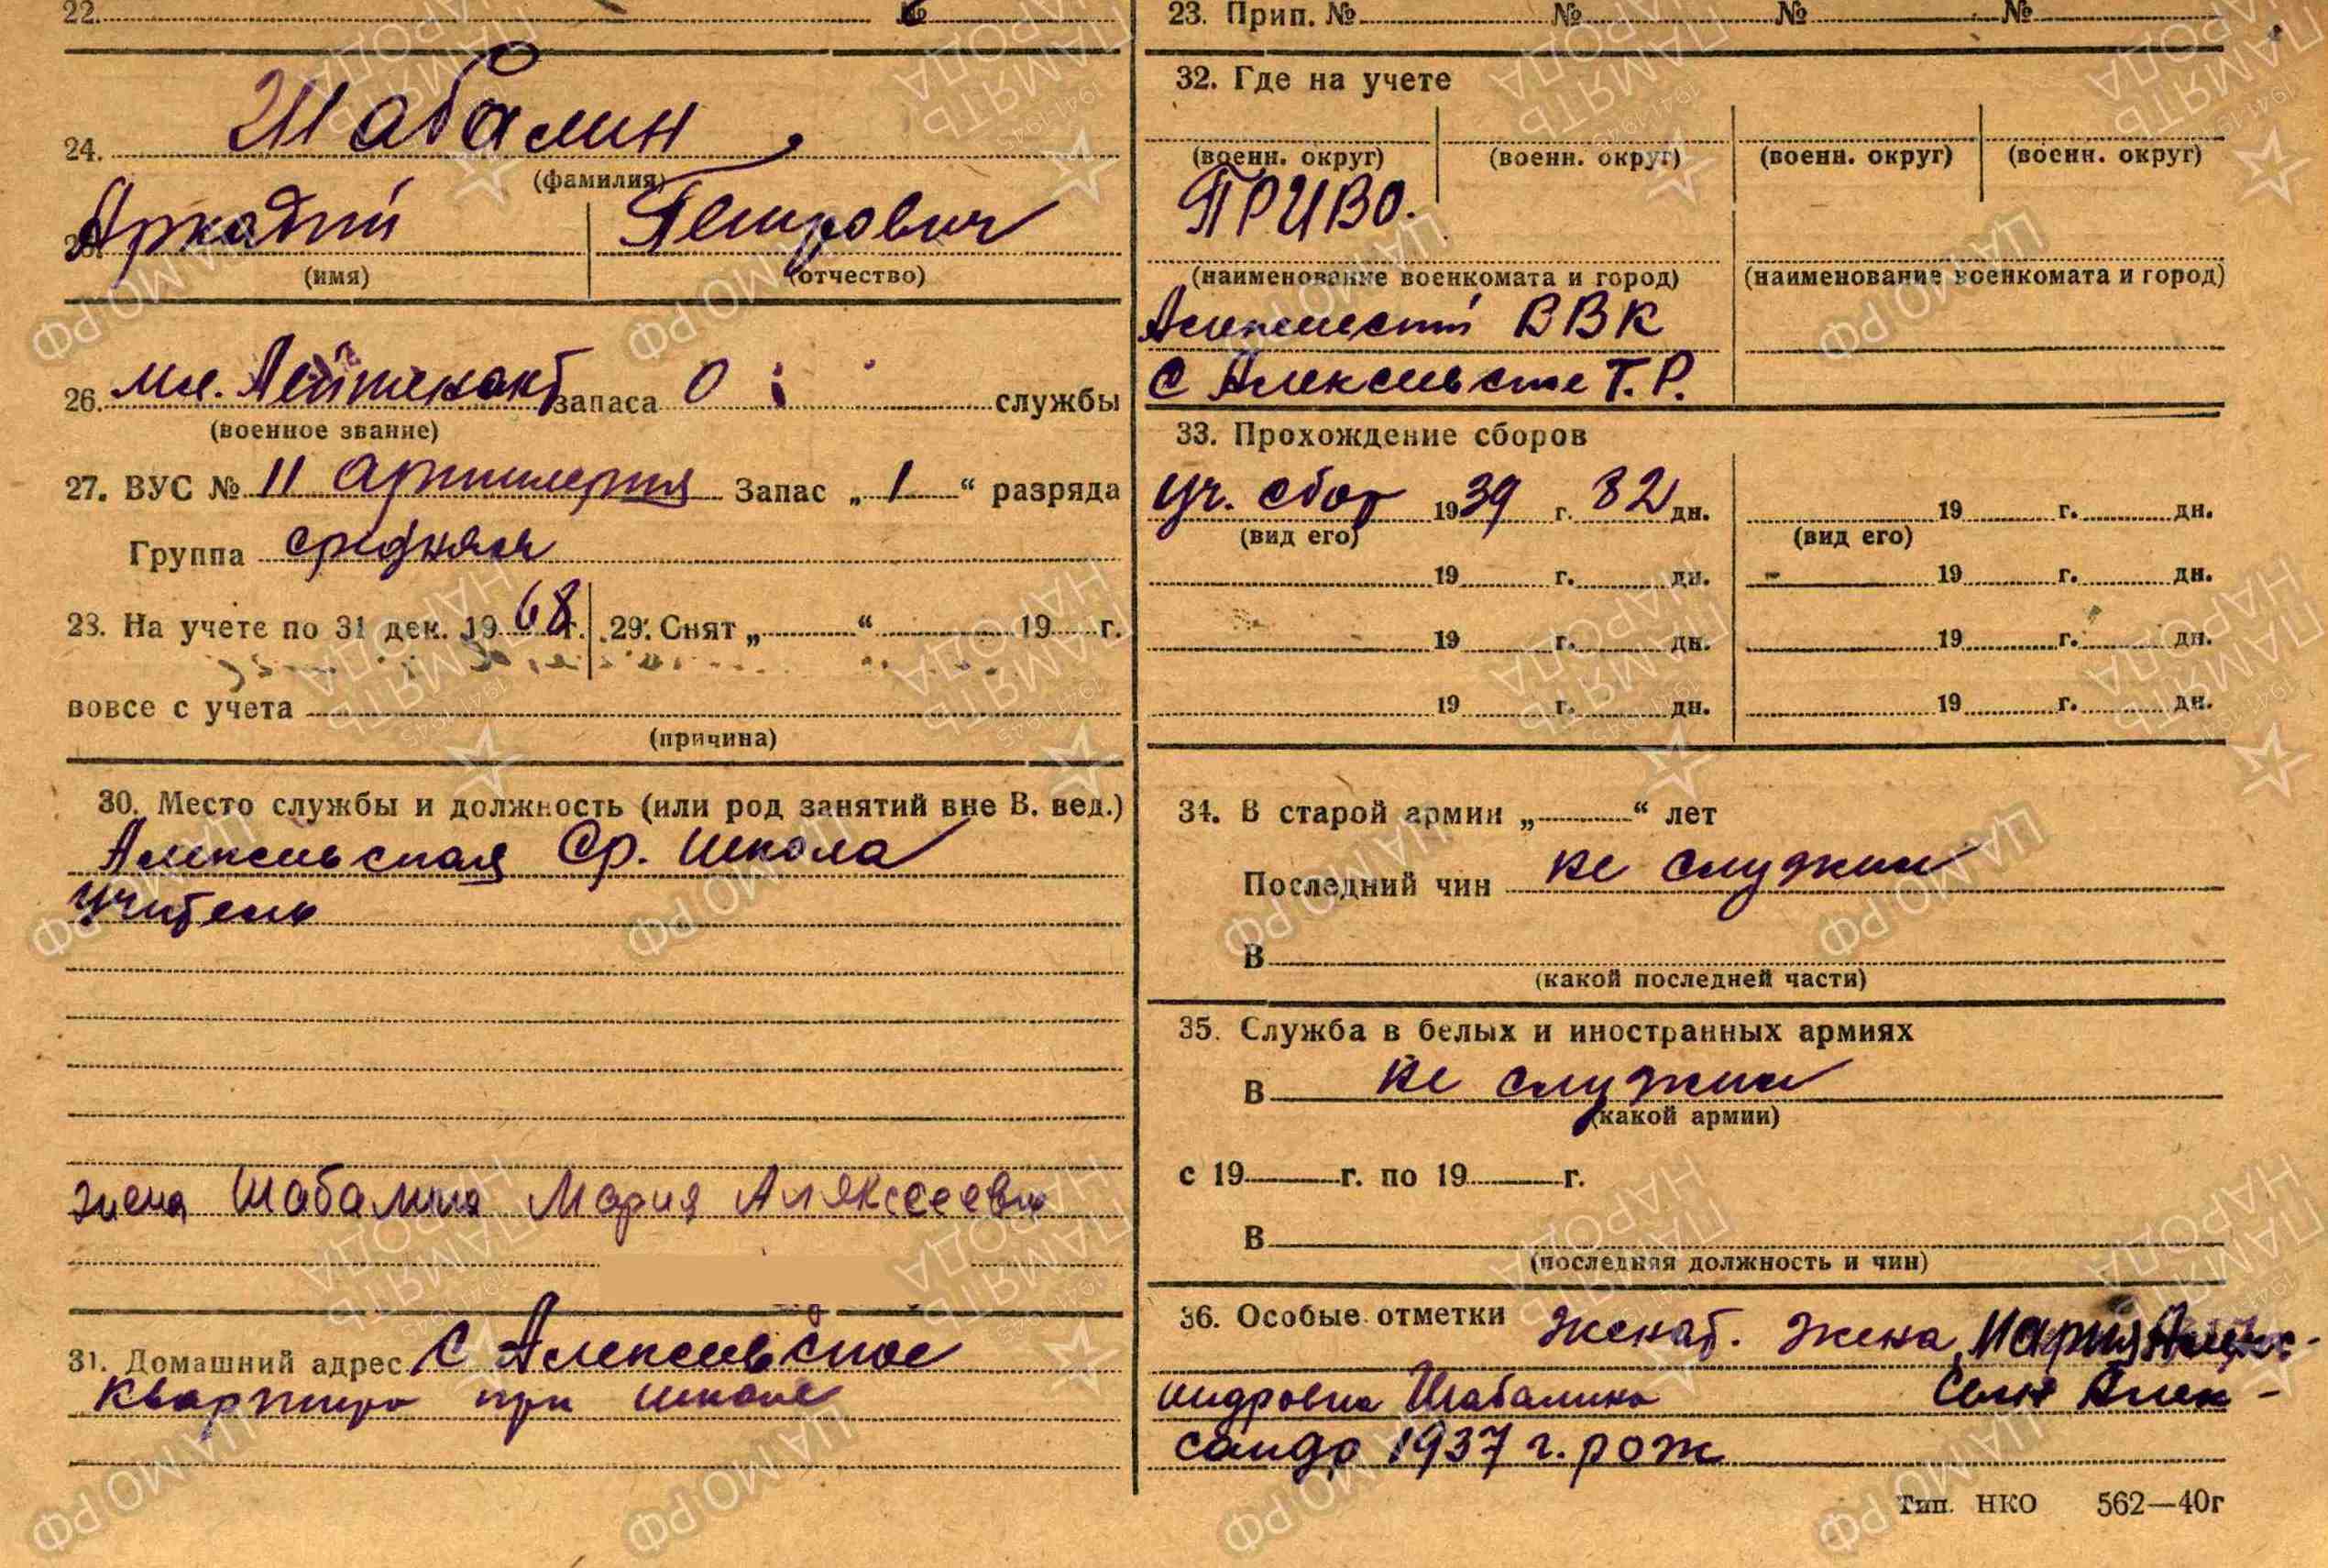 22. №
24. Шабалин
(фамилия)
25. Аркадий Петрович
(имя) (отчество)
26. мл. Лейтенант запаса службы
(военное звание)
27. ВУС № 11 артилерия Запас „ 1 “ разряда
Группа средняя
28. На учете по 31 дек. 1968 г. 29. Снят „ “ 19 г.
вовсе с учета
(причина)
30. Место службы и должность (или род занятий вне В. вед.)
Алексеевская Ср. школа
учитель
жена Шабалина Мария Аляксеевн
31. Домашний адрес с Алексеевское
квартира при школе
23. Прип. № № № №
32. Где на учете
(военн. округ) (военн. округ) (военн. округ) (военн. округ)
ПРИВО.
(наименование военкомата и город) (наименование военкомата и город)
ВВК
с Т.Р.
33. Прохождение сборов
Уч. сбор 1939 г. 32 дн. 19 г. дн.
(вид его) (вид его)
19 г. дн. 19 г. дн.
19 г. дн. 19 г. дн.
19 г. дн. 19 г. дн.
34. В старой армии „ “ лет
Последний чин не служил
В
(какой последней части)
35. Служба в белых и иностранных армиях
В не служил
(какой армии)
с 19 г. по 19 г.
В
(последняя должность и чин)
36. Особые отметки женат. Жена Мария Алекс-
андровна Шабалина Сын Алек-
сандр 1937 г. рож
Тип. НКО 562—40г
ПАМЯТЬ НАРОДА
1941-1945
ЦАМО РФ